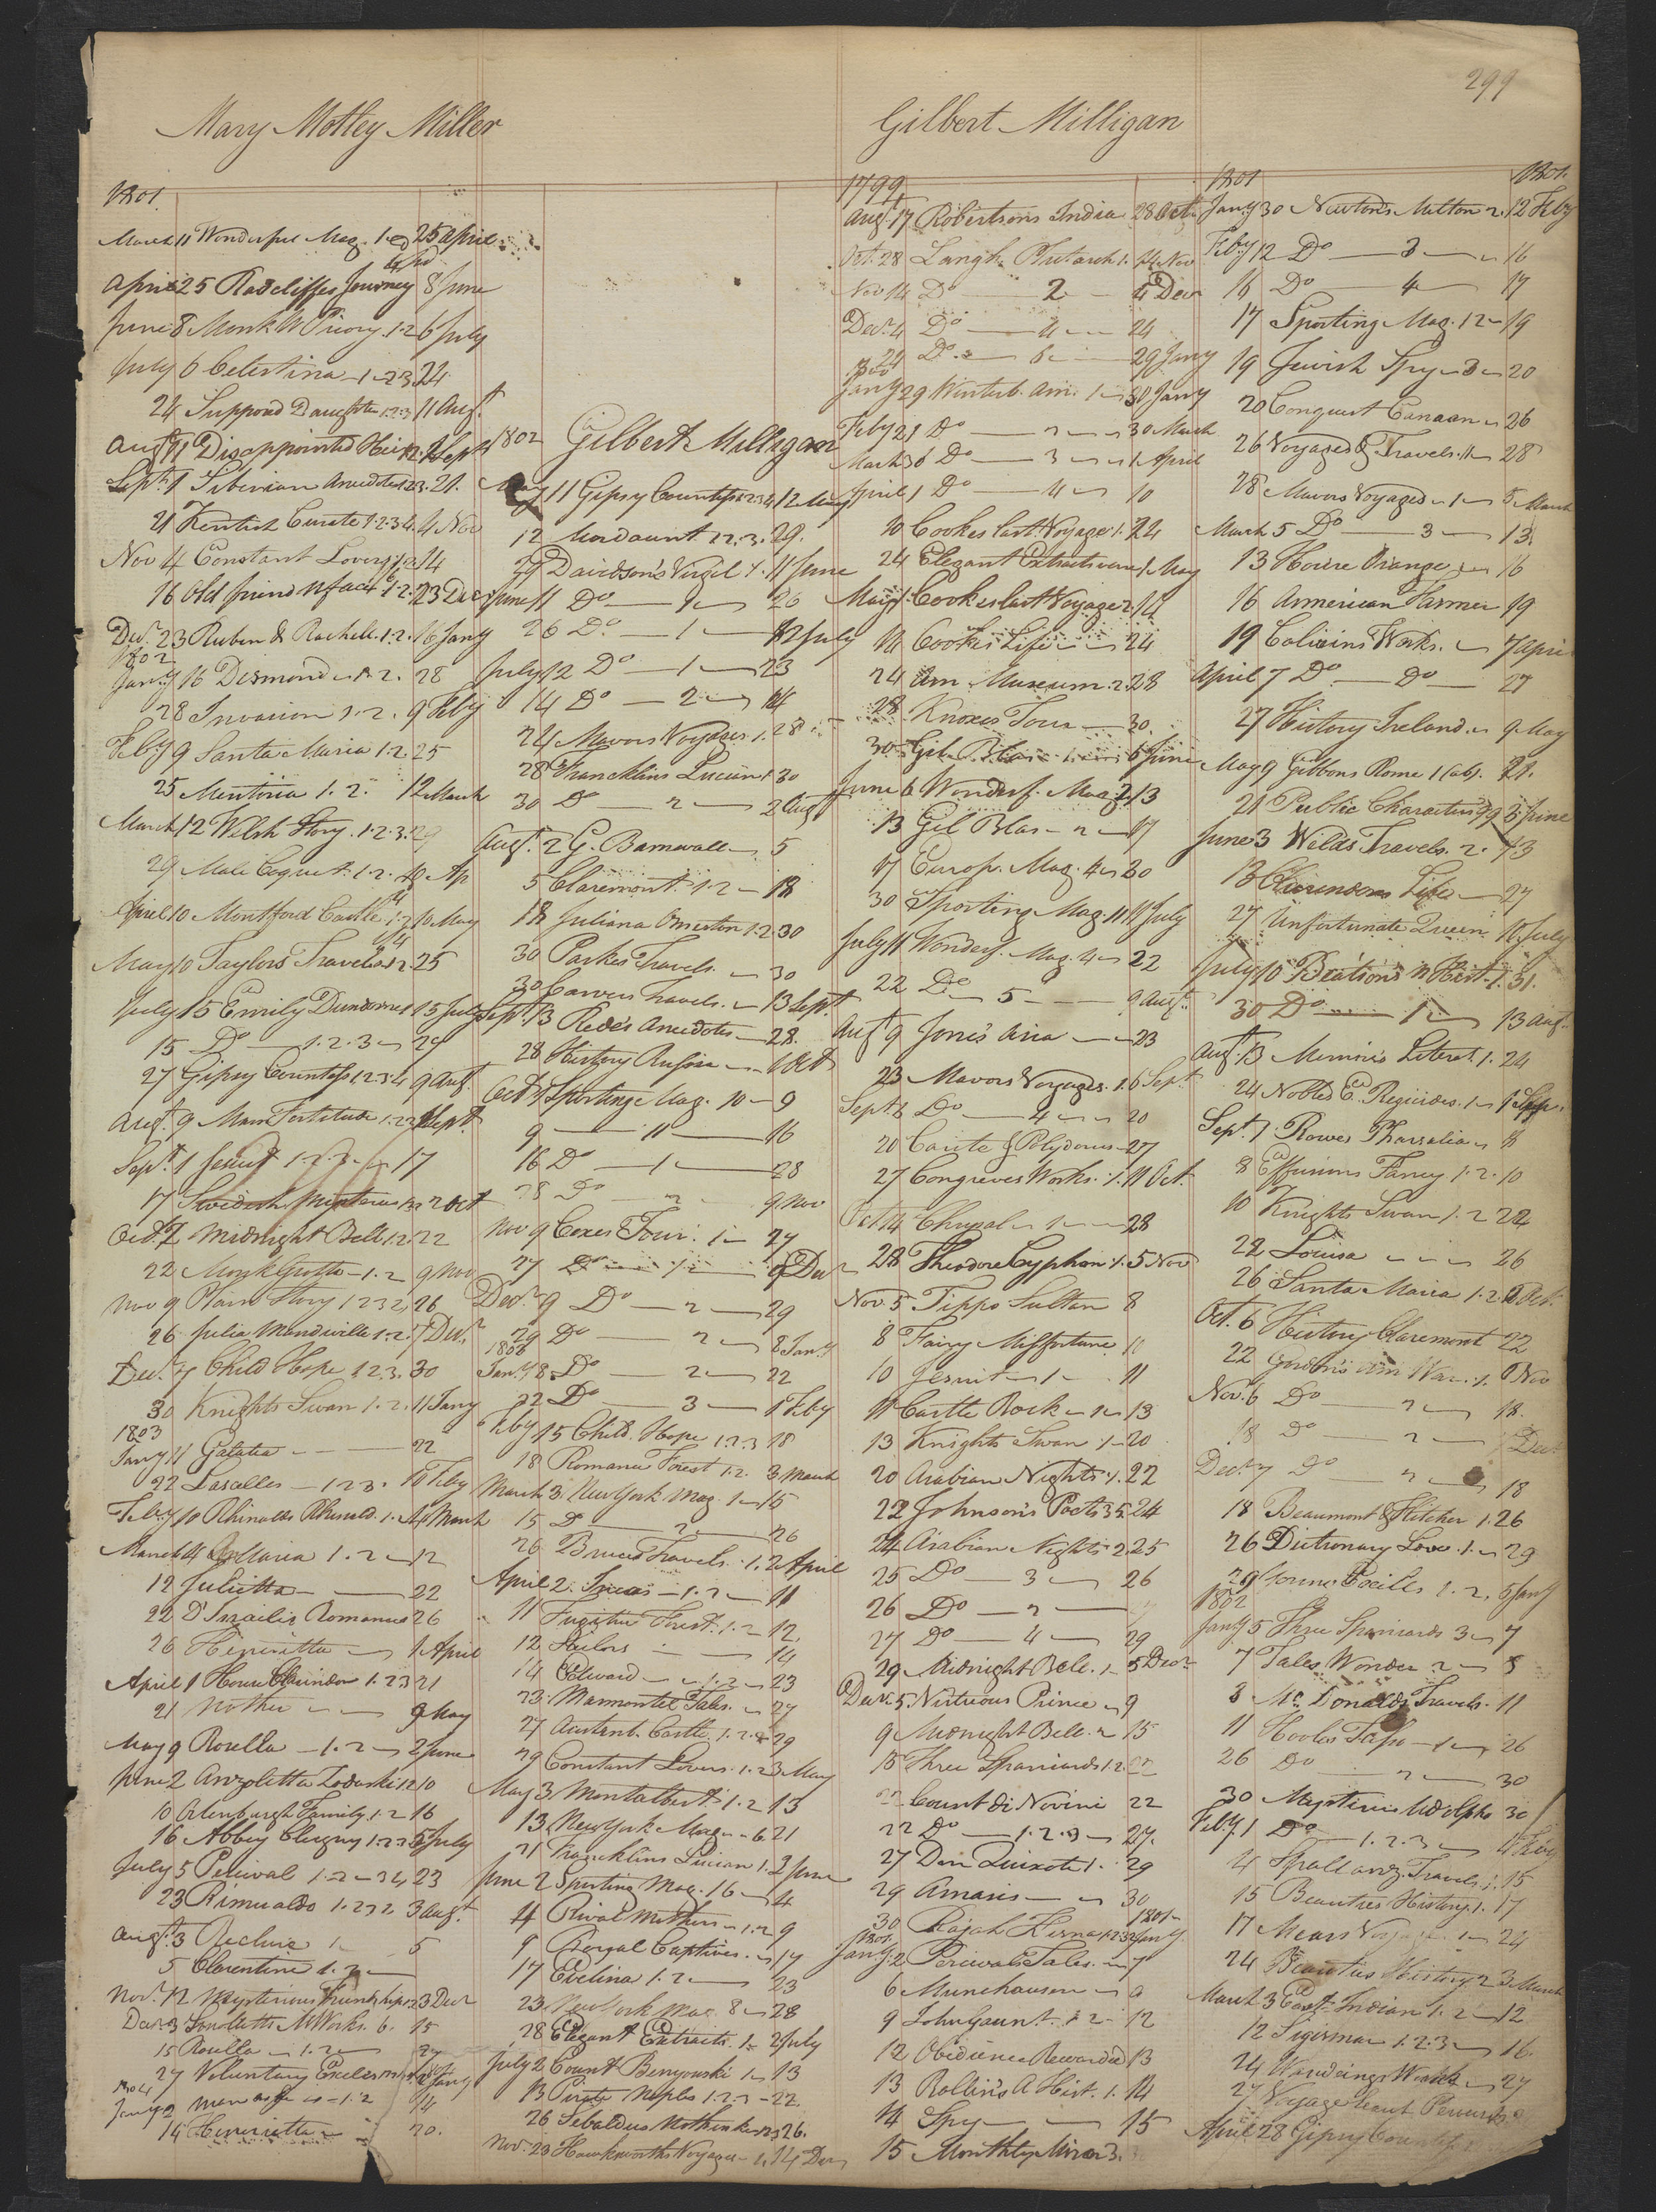 299
Mary Motley Miller
1801
March 11 Wonderful Mag. 1. 25 April
April 25 Radcliffes Journey 8 June
June 8 Monk W Priory 1.2 6 July
July 6 Celestina 1 2 3 24
24 Supposd Daughter 1.2.3 11 Augt
Augt 11 Disappointed Heir 1.2. 1 Sept
Sept. 1 Siberian Anecdotes 1.2.3. 21.
21 Kentish Curate 1.2.3.4. 4 Nov
Nov 4 Constant Lovers 1.2 14
16 Old friend N face 1.2. 23 Decr
Decr 23 Ruben & Rachell. 1.2. 16 Jany
1802
Jany 16 Desmond 1.2. 28
28 Invasion 1.2. 9 Feby
Feby 9 Santa Maria 1.2. 25
25 Mentoria 1.2. 12 March
March 12 Welsh Story. 1.2.3. 29
29 Male Coquet. 1.2. 10 Ap
April 10 Montford Castle 1.2 10 May
May 10 Taylors Travels 1.2 25
July 15 Emily Dundorne 15 July
15 Do 1.2.3 27
27 Gipsy Countess 1.2.3.4 9 Augt
Augt. 9 Mans Fortitude 1.2.3 1 Sept.
Sept. 1 Jesuit 1.2.3 17
17 Swedish Mysteries 1.2.3 2 Oct
Octr. 2 Midnight Bell 1.2. 22
22 Monk Grotto 1.2 9 Nov
Nov 9 Plain Story 1 2 3 2. 26
26 Julia Mandiville 1.2. 7 Decr
Decr. 7 Child Hope 1.2.3. 30
30 Knights Swan 1.2. 11 Jany
1803
Jany 11 Galatea 22
22 Lasalles 1.2.3. 10 Feby
Feby 10 Rhinallo Rhinald. 1. 4 March
March 4 Maria 1.2 12
12 Julietta 22
22 D'Israilis Romances 26
26 Henrietta 1 April
April 1 House Clarindon 1.2 3 21
21 Mother 9 May
May 9 Rosella 1.2 2 June
June 2 Anzoletta Zadoski 1.2 10
10 Orlenburgh Family. 1.2 16
16 Abbey Clugny 1.2.3 5 July
July 5 Percival 1.2 3 4 23
23 Rimualdo 1.2 3 2. 3 Augt.
Augt. 3 Recluse 1 5
5 Clarentine 1.2
Nov. 12 Mysterious Friendship 1.2 3 Decr
Decr 3 Smolletts M Works. 6. 15
15 Rosella 1.2 27
27 Voluntary Exile 2 Jany
1804
Jany 2 Marriage 1.2 14
14 Henrietta 20.
1802 Gilbert Milligan
May 11 Gipsy Countess 1 2 3 4 12 May
12 Mordaunt 1 2. 3. 29.
29 Davidson's Virgil 1. 11 June
June 11 Do 1 26
26 Do 1 12 July
July 12 Do 1 23
14 Do 2 14
24 Mavors Voyages 1. 28
28 Francklins Lucian 1 30
30 Do 2 2 Augt
Augt. 2 G. Barnwall 5
5 Claremont. 1.2 18
18 Juliana Ormeston 1.2. 30
30 Parkes Travels. 30
30 Carvers Travels. 13 Sept
Sept 13 Rede's Anecdotes 28.
28 History Russia 1 Oct
Octr 1 Sporting Mag. 10 9
9 11 16
16 Do 1 28
28 Do 2 9 Nov
Nov 9 Coxes Tour. 1 27
27 Do 1 9 Decr
Decr 9 Do 2 29
29 Do 2 8 Jany
1803
Jany 8 Do 2 22
22 Do 3 1 Feby
Feby 15 Child. Hope 1.2.3 18
18 Romance Forest 1.2. 3 March
March 3 New York Mag. 1 15
15 Do 2 26
26 Bruces Travels. 1. 2 April
April 2 Incas 1.2 11
11 Fugitive Forest 1.2 12.
12 Sailors 14
14 Edward 1.2 23
23. Marmontel Tales. 27
27 Austenb. Castle. 1.2. 29
29 Constant Lovers. 1.2 3 May
May 3 Montalbert 1.2 13
13 New York Mag. 6. 21
21 Francklins Lucian 1. 2 June
June 2 Sporting Mag. 16 4
4 Rival Mothers 1.2 9
9 Royal Captives. 17
17 Evelina 1.2 23
23 New York Mag. 8 28
28 Elegant Extracts. 1. 2 July
July 2 Count Benyowski 1 13
13 Pirate Naples 1.2.3 22.
26 Sebaldus Nothanker 1.2 26.
Nov. 23 Hawkesworths Voyages 1. 14 Decr
Gilbert Milligan
1799
Augt 17 Robertsons India 28 Oct.
Oct. 28 Langh. Plutarch 1. 14 Nov
Nov 14 Do 2 4 Decr
Decr. 4 Do 4 24
24 Do 6 29 Jany
1800
Jany 29 Winterb. Am. 1 30 Jany
Feby 21 Do 2 30 March
March 30 Do 3 1 April
April 1 Do 4 10
10 Cookes last Voyage 1. 24
24 Elegant Extracts verse 1 May
May 1. Cookes last Voyage 2 14
14 Cooks Life 24
24 Am Museum. 2. 28
28 Knoxes Tour 30.
30 Gil Blas 1 6 June
June 6 Wonderf. Mag. 2 13
13 Gil Blas 2 17
17 Europ. Mag. 4 30
30 Sporting Mag. 11 11 July
July 11 Wonderf. Mag. 4 22
22 Do 5 9 Augt.
Augt 9 Jone's Asia 23
23 Mavors Voyages. 1. 6 Sept.
Sept 6 Do 4 20
20 Carite & Polydorus 27
27 Congreves Works. 1. 11 Oct.
Oct 14 Chrysal 1 28
28 Theodore Cyphon 1. 5 Nov
Nov. 5 Tippo Sultan 8
8 Fairy Misfortune 11
10 Jesuit 1 11
11 Castle Rock 1 13
13 Knights Swan 1 20
20 Arabian Nights 1. 22
22 Johnson's Poets 35 24
24 Arabian Nights 2. 25
25 Do 3 26
26 Do 2
27 Do 4 29
29 Midnight Bell. 1 5 Decr
Decr. 5 Virtuous Prince 9
9 Midnight Bell. 2 15
15 Three Spaniards 1.2. 22
22 Count di Novini 22
22 Do 1.2.3 27.
27 Don Quixote 1. 29
29 Amasis 30
30 Rajah Kisna 1.2 3 2 Jany.
1801
Jany. 2 Percivals Tales. 7
6 Munchausen 9
9 John Gaunt. 1 2 12
12 Obidience Rewarded 13
13 Rollin's A Hist. 1. 14
14 Spy 15
15 Monthly Mirror 3.
1801
Jany 30 Newton's Milton 2. 12 Feby
Feby 12 Do 3 16
16 Do 4 17
17 Sporting Mag. 12 19
19 Jewish Spy 3 20
20 Conquest Canaan 26
26 Voyages & Travels. 11 28
28 Mavors Voyages 1 5 March
March 5 Do 3 13.
13 House Orange 16
16 Armerican Farmer 19
19 Colivins Works. 7 April
April 7 Do Do 27
27 History Ireland. 9 May
May 9 Gibbons Rome 1 (ab). 21.
21 Public Characters 99 3 June
June 3 Welds Travels. 2. 13
13 Clarendons Life 27
27 Unfortunate Queen 10 July
July 10 Beatson's N Hist. 1. 31.
30 Do 1 13 Augt.
Augt. 13 Memoirs Literat. 1. 24
24 Nobles E. Regicides. 1 1 Sep.
Sept. 1. Rowes Pharsalia 8
8 Effusions Fancy 1.2. 10
10 Knights Swan 1.2 22
22 Louisa 26
26 Santa Maria 1.2. 6 Oct.
Oct. 6 History Claremont 22
22 Gordon's Am War. 1. 6 Nov
Nov. 6 Do 2 18.
18 Do 2 7 Decr
Decr 7 Do 2 18
18 Beaumont & Fletcher 1. 26
26 Dictionary Love. 1. 29
29 Young Exiles 1.2. 5 Jany
1802
Jany 5 Three Spaniards 3 7
7 Tales Wonder 2 8
8 Mc Donalds Travels. 11
11 Hooles Tasso 1 26
26 Do 2 30
30 Mysteries Udolpho 30
Feby. 1 Do 1.2.3 4 Feby
4 Spallanz. Travels. 1. 15
15 Beauties History. 1. 17
17 Mears Voyages 1 24
24 Beauties History. 2 3 March
March 3 East Indian 1.2 12
12 Sigismar 1.2.3 16.
24 Wanderings Works 27
27 Voyage
April 28 Gipsy Countess